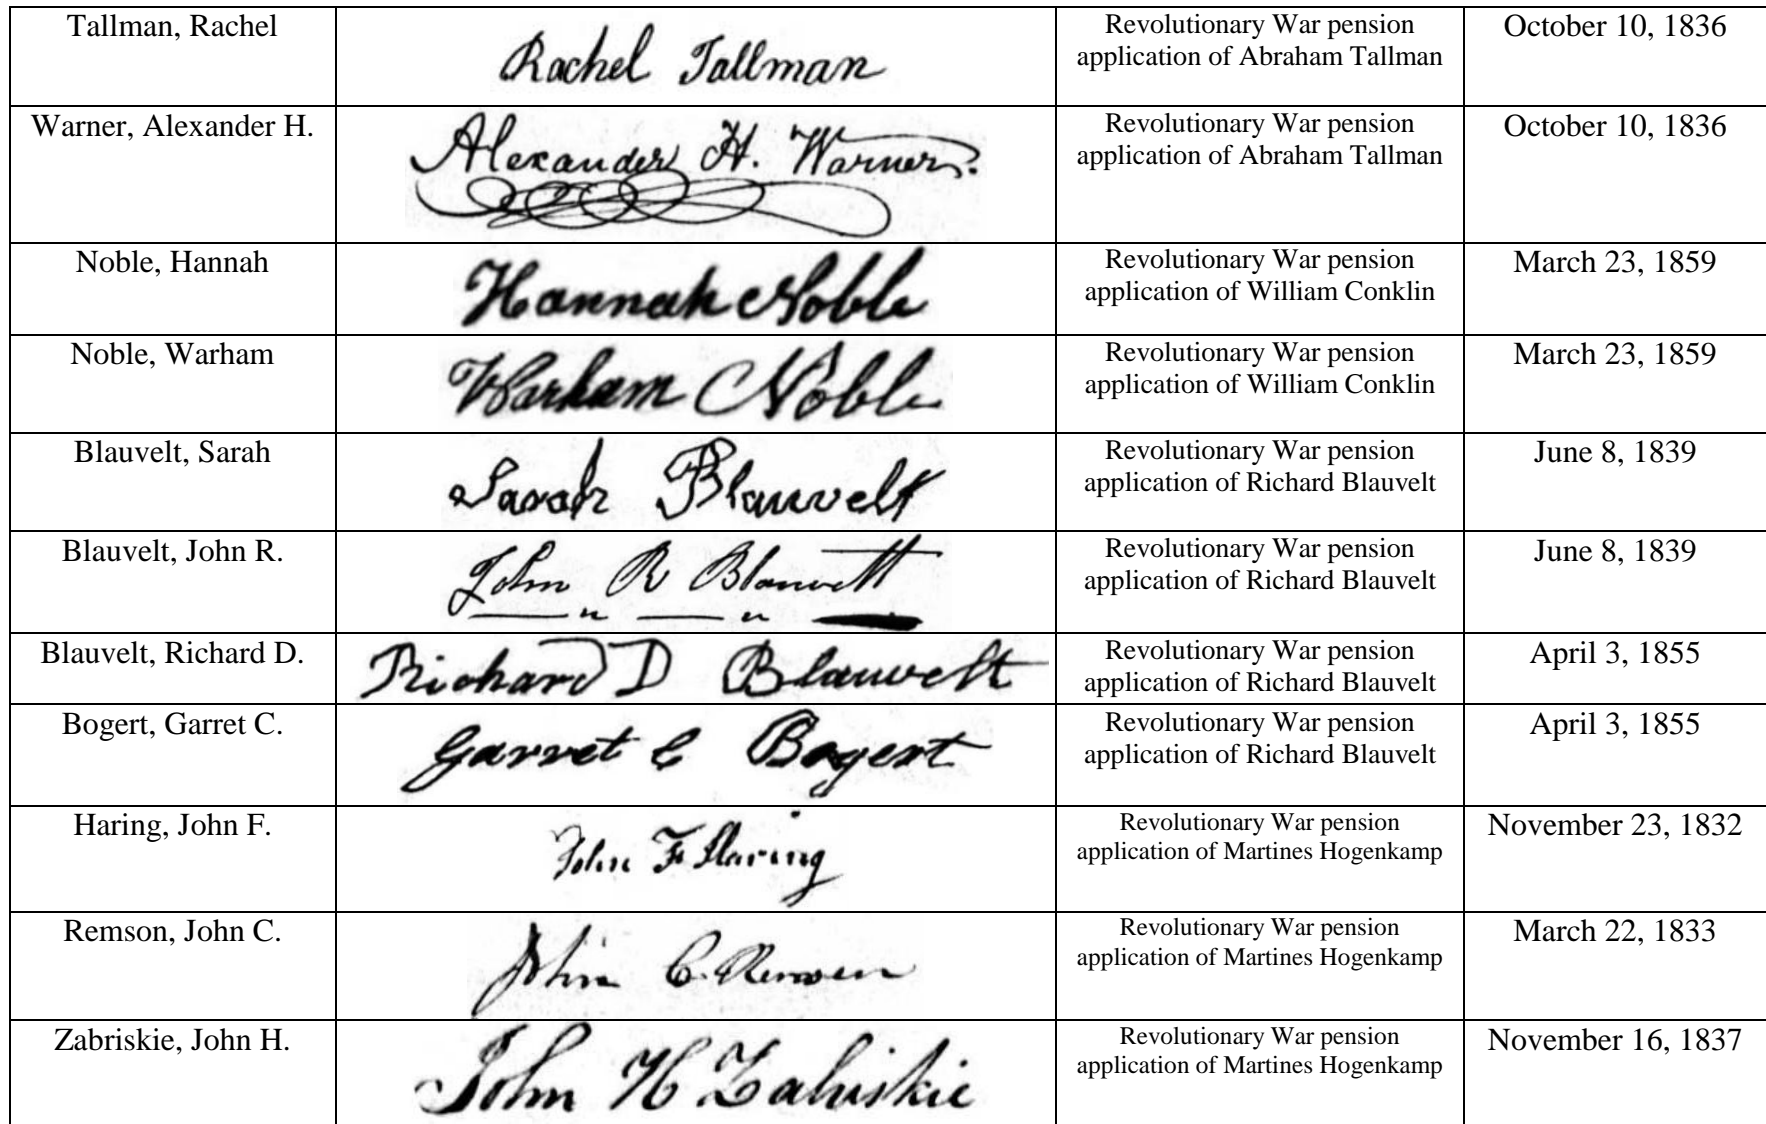 Tallman, Rachel
Rachel Tallman
Revolutionary War pension
application of Abraham Tallman
October 10, 1836
Warner, Alexander H.
Alexander H. Warner.
Revolutionary War pension
application of Abraham Tallman
October 10, 1836
Noble, Hannah
Hannah Noble
Revolutionary War pension
application of William Conklin
March 23, 1859
Noble, Warham
Warham Noble
Revolutionary War pension
application of William Conklin
March 23, 1859
Blauvelt, Sarah
Sarah Blauvelt
Revolutionary War pension
application of Richard Blauvelt
June 8, 1839
Blauvelt, John R.
John R Blauvelt
Revolutionary War pension
application of Richard Blauvelt
June 8, 1839
Blauvelt, Richard D.
Richard D Blauvelt
Revolutionary War pension
application of Richard Blauvelt
April 3, 1855
Bogert, Garret C.
Garret C Bogert
Revolutionary War pension
application of Richard Blauvelt
April 3, 1855
Haring, John F.
John F. Haring
Revolutionary War pension
application of Martines Hogenkamp
November 23, 1832
Remson, John C.
John C. Remsen
Revolutionary War pension
application of Martines Hogenkamp
March 22, 1833
Zabriskie, John H.
John H Zabriskie
Revolutionary War pension
application of Martines Hogenkamp
November 16, 1837